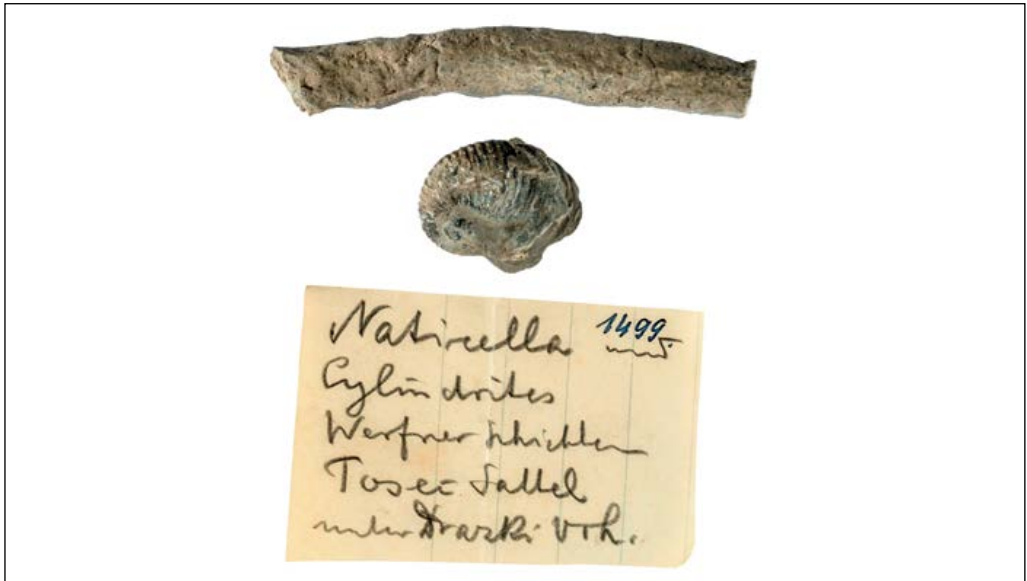 Naticella 1499
Cylindrites
Werfner Schichten
Tosec Sattel
unter Draski Vrh.